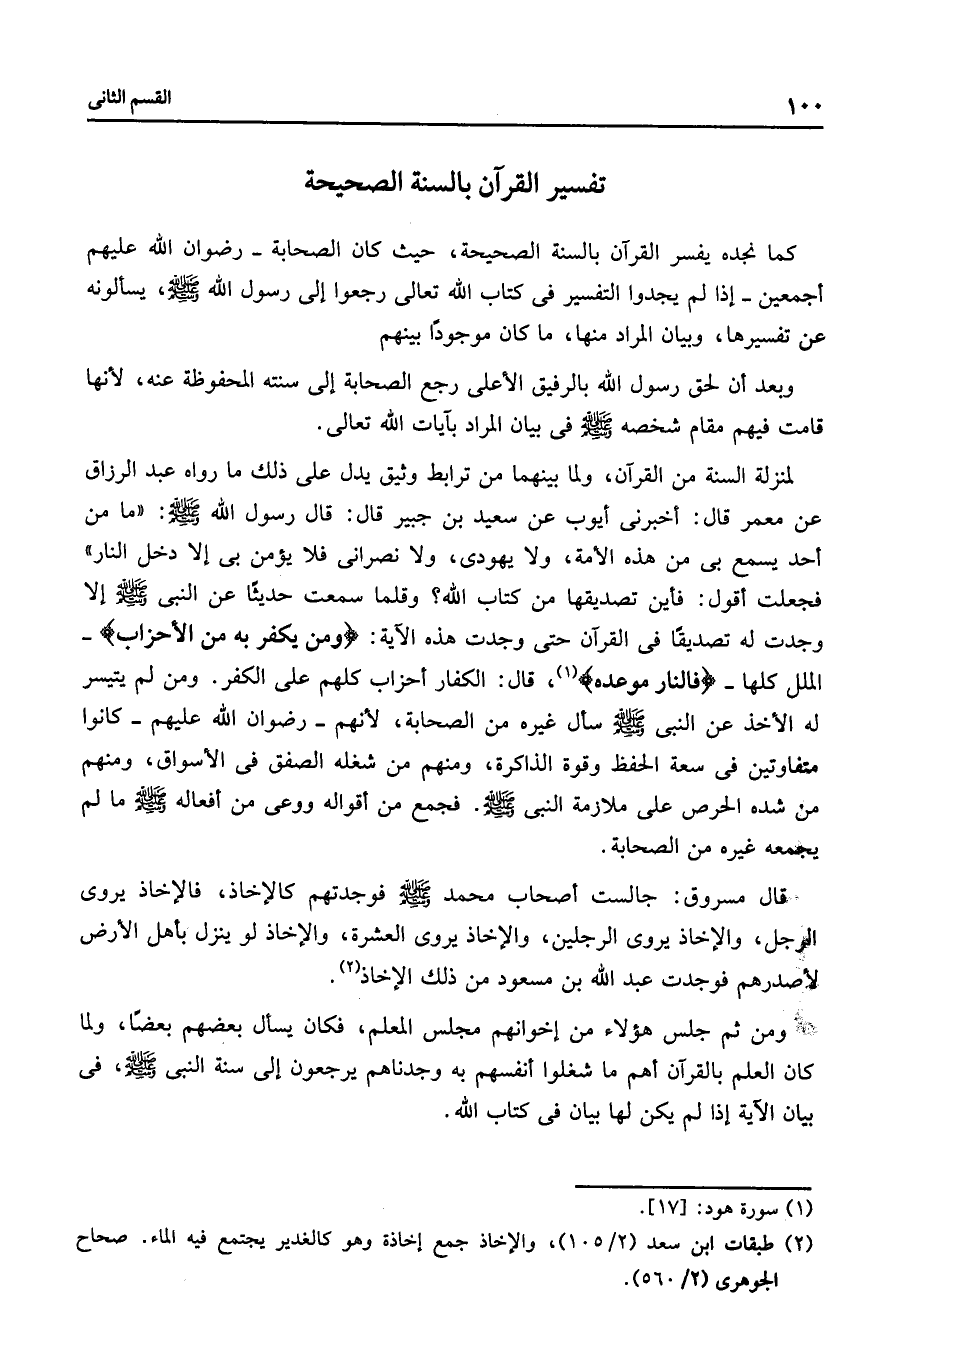 ١٠٠ القسم الثانى
تفسير القرآن بالسنة الصحيحة
كما نجده يفسر القرآن بالسنة الصحيحة، حيث كان الصحابة ـ رضوان الله عليهم
أجمعين ـ إذا لم يجدوا التفسير فى كتاب الله تعالى رجعوا إلى رسول الله ﷺ، يسألونه
عن تفسيرها، وبيان المراد منها، ما كان موجودًا بينهم
وبعد أن لحق رسول الله بالرفيق الأعلى رجع الصحابة إلى سنته المحفوظة عنه، لأنها
قامت فيهم مقام شخصه ﷺ فى بيان المراد بآيات الله تعالى.
لمنزلة السنة من القرآن، ولما بينهما من ترابط وثيق يدل على ذلك ما رواه عبد الرزاق
عن معمر قال: أخبرنى أيوب عن سعيد بن جبير قال: قال رسول الله ﷺ: «ما من
أحد يسمع بى من هذه الأمة، ولا يهودى، ولا نصرانى فلا يؤمن بى إلا دخل النار»
فجعلت أقول: فأين تصديقها من كتاب الله؟ وقلما سمعت حديثًا عن النبى ﷺ إلا
وجدت له تصديقًا فى القرآن حتى وجدت هذه الآية: ﴿ومن يكفر به من الأحزاب﴾ ـ
الملل كلها ـ ﴿فالنار موعده﴾(١)، قال: الكفار أحزاب كلهم على الكفر. ومن لم يتيسر
له الأخذ عن النبى ﷺ سأل غيره من الصحابة، لأنهم ـ رضوان الله عليهم ـ كانوا
متفاوتين فى سعة الحفظ وقوة الذاكرة، ومنهم من شغله الصفق فى الأسواق، ومنهم
من شده الحرص على ملازمة النبى ﷺ. فجمع من أقواله ووعى من أفعاله ﷺ ما لم
يجمعه غيره من الصحابة.
قال مسروق: جالست أصحاب محمد ﷺ فوجدتهم كالإخاذ، فالإخاذ يروى
الرجل، والإخاذ يروى الرجلين، والإخاذ يروى العشرة، والإخاذ لو ينزل بأهل الأرض
لأصدرهم فوجدت عبد الله بن مسعود من ذلك الإخاذ(٢).
ومن ثم جلس هؤلاء من إخوانهم مجلس المعلم، فكان يسأل بعضهم بعضًا، ولما
كان العلم بالقرآن أهم ما شغلوا أنفسهم به وجدناهم يرجعون إلى سنة النبى ﷺ، فى
بيان الآية إذا لم يكن لها بيان فى كتاب الله.
(١) سورة هود: [١٧].
(٢) طبقات ابن سعد (٢/ ١٠٥)، والإخاذ جمع إخاذة وهو كالغدير يجتمع فيه الماء. صحاح
الجوهرى (٢/ ٥٦٠).